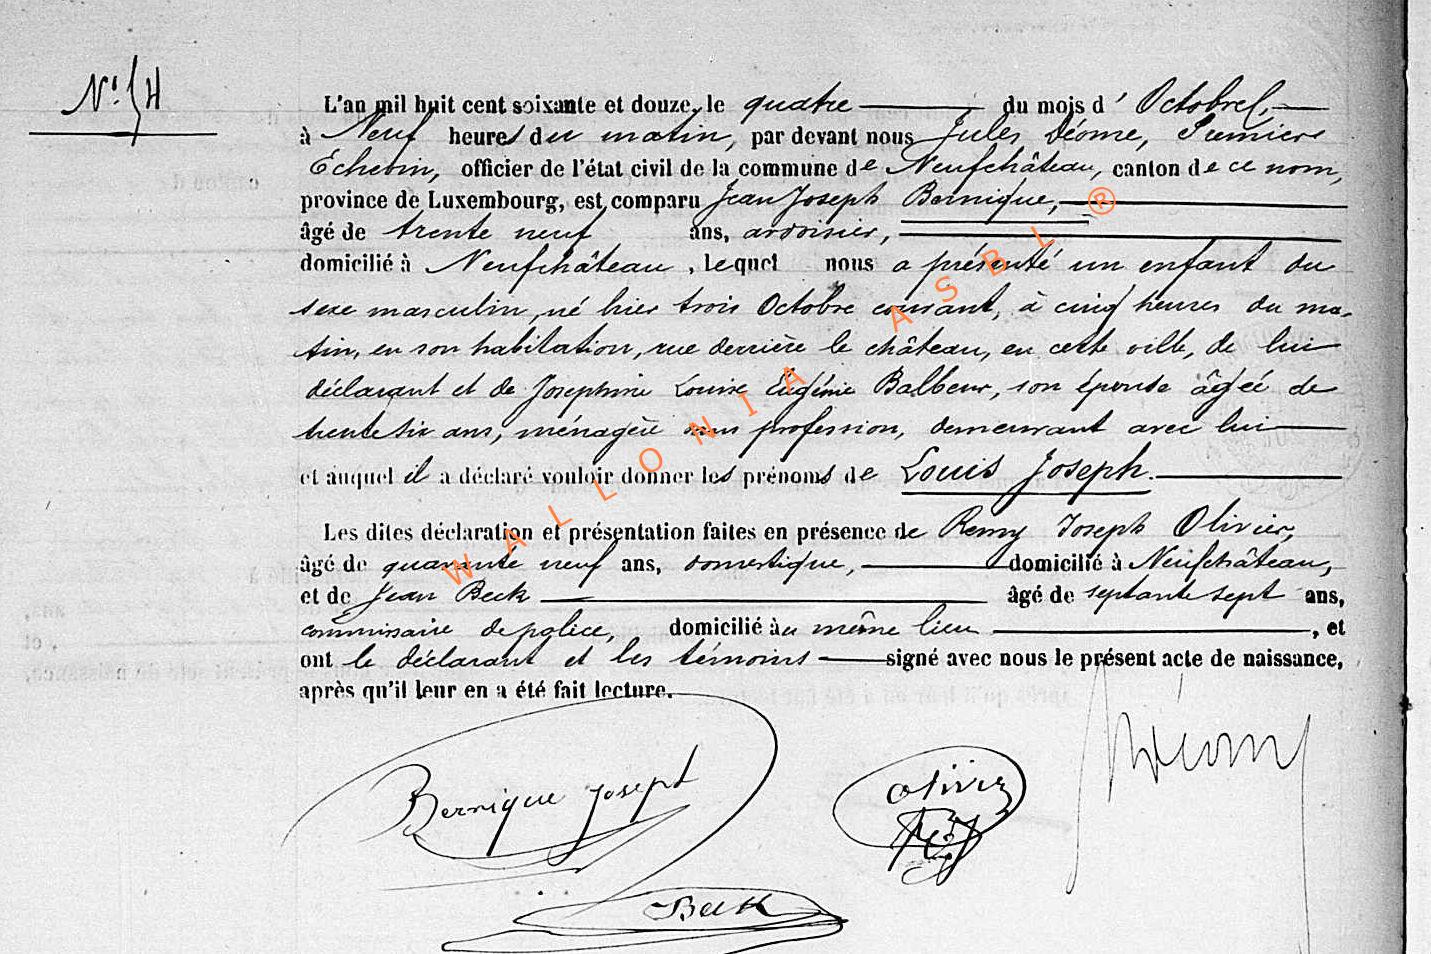 N° 54
L'an mil huit cent soixante et douze, le quatre du mois d' Octobre,
à Neuf heures du matin, par devant nous Jules Déome, Premier
Échevin, officier de l'état civil de la commune de Neufchâteau, canton de ce nom,
province de Luxembourg, est comparu Jean Joseph Bernique,
âgé de trente neuf ans, ardoisier,
domicilié à Neufchâteau, lequel nous a présenté un enfant du
sexe masculin, né hier trois Octobre courant, à cinq heures du ma-
tin, en son habitation, rue derrière le château, en cette ville, de lui
déclarant et de Joséphine Louise Eugénie Balbeur, son épouse âgée de
trente six ans, ménagère sans profession, demeurant avec lui
et auquel il a déclaré vouloir donner les prénoms de Louis Joseph.
Les dites déclaration et présentation faites en présence de Remy Joseph Olivier,
âgé de quarante neuf ans, domestique, domicilié à Neufchâteau,
et de Jean Beck âgé de septante sept ans,
commissaire de police, domicilié au même lieu, et
ont le déclarant et les témoins signé avec nous le présent acte de naissance,
après qu'il leur en a été fait lecture.
Bernique Joseph
Olivier
JDéome
Beck
WALLONIA ASBL ®